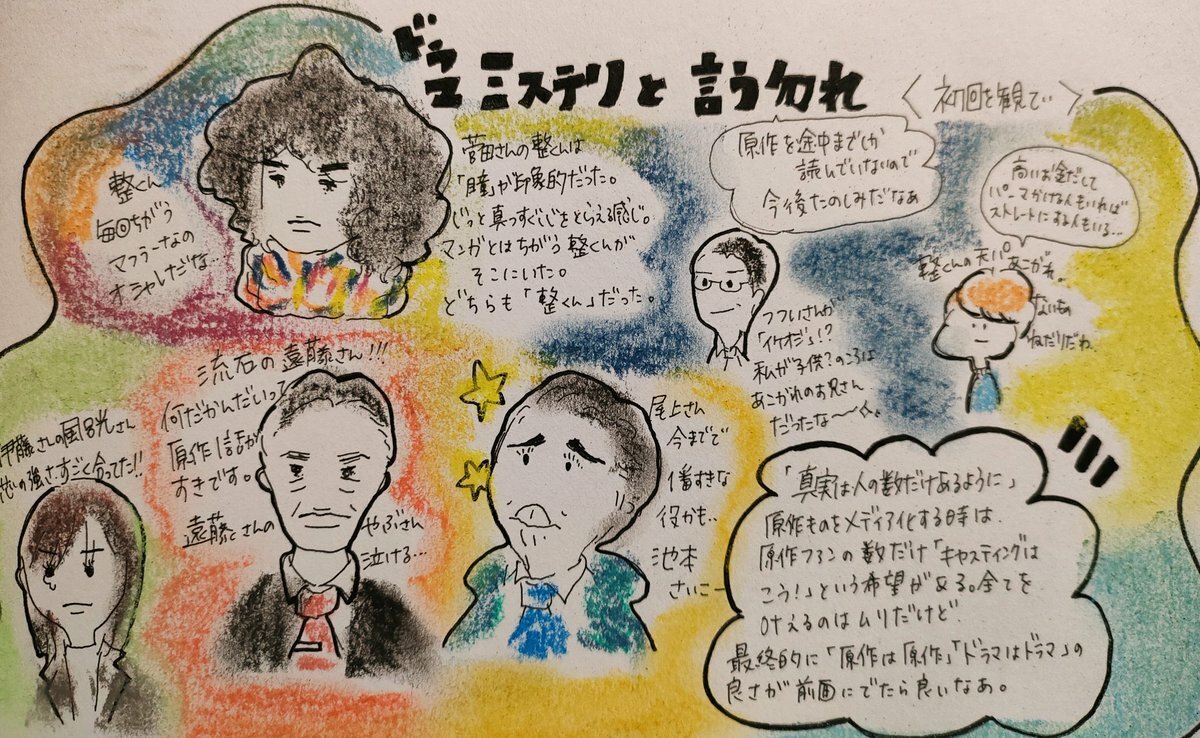 ドラマ ミステリと言う勿れ
〈初回を観て〉
整くん
毎回ちがう
マフラーなの
オシャレだな…
菅田さんの整くんは
「瞳」が印象的だった。
じっと真っすぐじをとらえる感じ。
マンガとはちがう整くんが
そこにいた。
どちらも「整くん」だった。
原作を途中までしか
読んでいないので
今後たのしみだなぁ
高いお金だして
パーマかける人もいれば
ストレートにする人もいる…
整くんの天パあこがれ。
ないもの
ねだりだね
「イケオジ」!?
私が子供?のころは
あこがれのお兄さん
だったな〜
流石の遠藤さん!!!
何だかんだいって
原作1話が
すきです。
遠藤さんの
やぶさん
泣ける…
伊藤さんの風呂光さん
の強さすごく合ってた!!
尾上さん
今までで
1番すきな
役かも..
池本
さいこー
「真実は人の数だけあるように」
原作ものをメディア化する時は、
原作ファンの数だけ「キャスティングは
こう!」という希望がある。全てを
叶えるのはムリだけど、
最終的に「原作は原作」「ドラマはドラマ」の
良さが前面にでたら良いなあ。